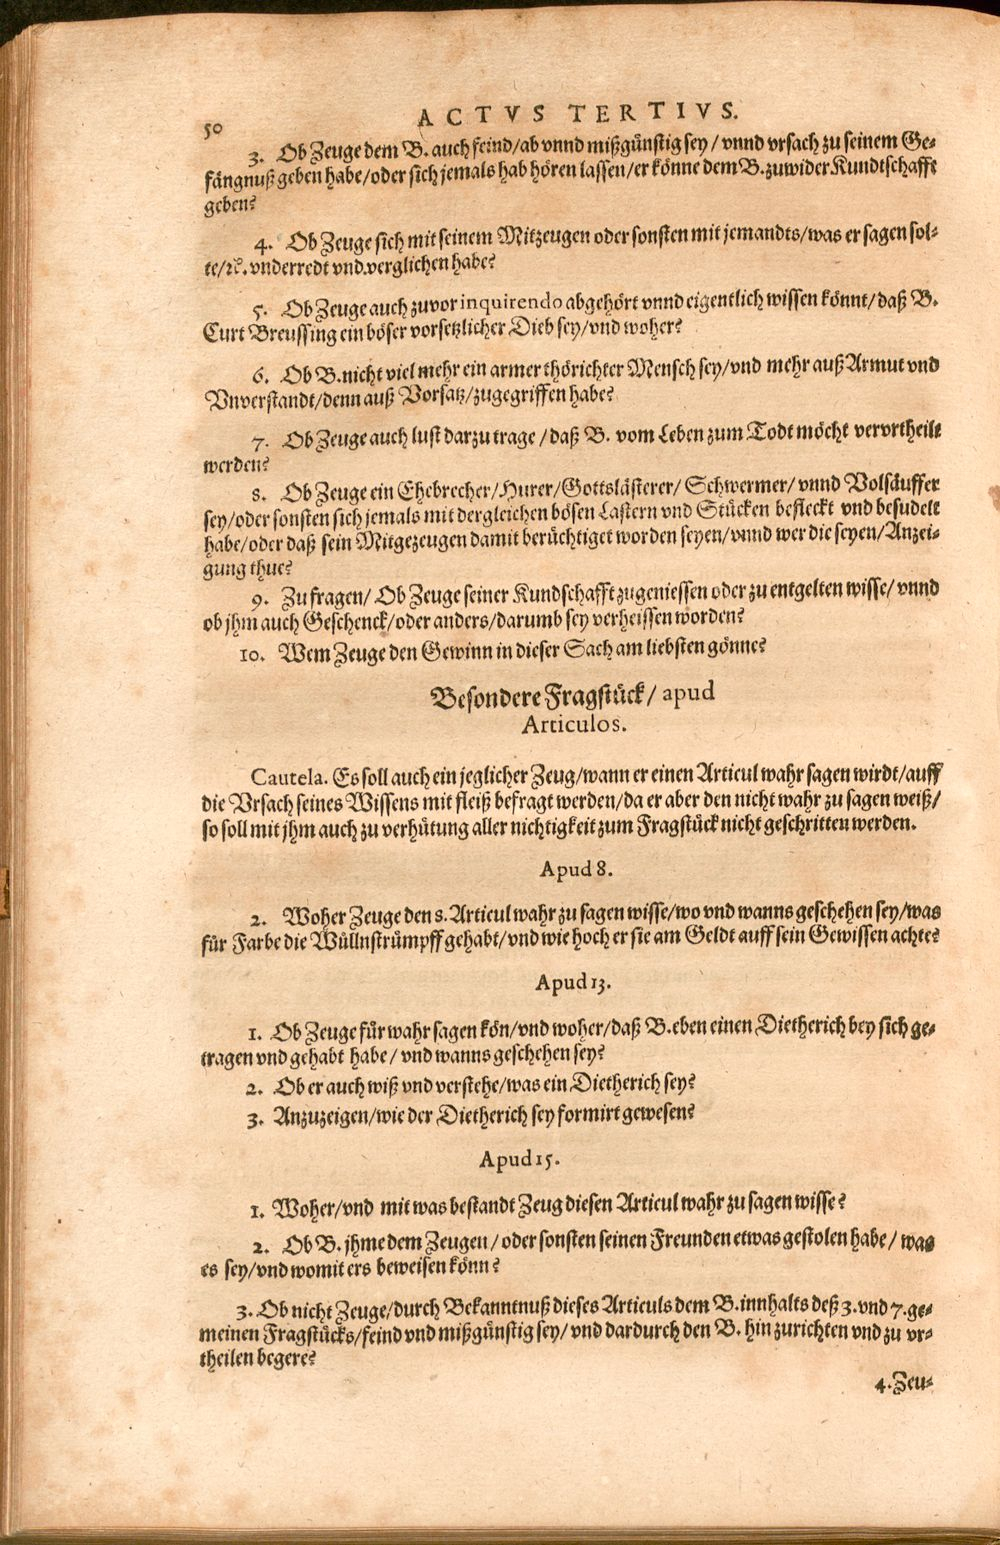 50
ACTVS TERTIVS.
3. Ob Zeuge dem B. auch feind/ab vnnd mißgünstig sey/ vnnd vrsach zu seinem Ge-
fängnuß geben habe/oder sich jemals hab hören lassen/er könne dem B. zuwider Kundtschafft
geben?
4. Ob Zeuge sich mit seinem Mitzeugen oder sonsten mit jemandts/was er sagen sol-
te/ꝛc. vnderredt vnd verglichen habe?
5. Ob Zeuge auch zuvor inquirendo abgehört vnnd eigentlich wissen könnt/daß B.
Curt Breussing ein böser vorsetzlicher Dieb sey/vnd woher?
6. Ob B. nicht viel mehr ein armer thörichter Mensch sey/vnd mehr auß Armut vnd
Vnverstandt/denn auß Vorsatz/zugegriffen habe?
7. Ob Zeuge auch lust darzu trage/daß B. vom Leben zum Todt möcht vervrtheilt
werden?
8. Ob Zeuge ein Ehebrecher/Hurer/Gottslästerer/ Schwermer/ vnnd Volsäuffer
sey/oder sonsten sich jemals mit dergleichen bösen Lastern vnd Stücken befleckt vnd besudelt
habe/oder daß sein Mitgezeugen damit berüchtiget worden seyen/vnnd wer die seyen/Anzei-
gung thue?
9. Zu fragen/ Ob Zeuge seiner Kundschafft zugeniessen oder zu entgelten wisse/ vnnd
ob jhm auch Geschenck/oder anders/darumb sey verheissen worden?
10. Wem Zeuge den Gewinn in dieser Sach am liebsten gönne?
Besondere Fragstück/ apud
Articulos.
Cautela. Es soll auch ein jeglicher Zeug/wann er einen Articul wahr sagen wirdt/auff
die Vrsach seines Wissens mit fleiß befragt werden/da er aber den nicht wahr zu sagen weiß/
so soll mit jhm auch zu verhütung aller nichtigkeit zum Fragstück nicht geschritten werden.
Apud 8.
2. Woher Zeuge den 8. Articul wahr zu sagen wisse/wo vnd wanns geschehen sey/was
für Farbe die Wüllnstrümpff gehabt/vnd wie hoch er sie am Geldt auff sein Gewissen achte?
Apud 13.
1. Ob Zeuge für wahr sagen kön/vnd woher/daß B. eben einen Dietherich bey sich ge-
tragen vnd gehabt habe/ vnd wanns geschehen sey?
2. Ob er auch wiß vnd verstehe/was ein Dietherich sey?
3. Anzuzeigen/wie der Dietherich sey formirt gewesen?
Apud 15.
1. Woher/vnd mit was bestandt Zeug diesen Articul wahr zu sagen wisse?
2. Ob B. jhme dem Zeugen/ oder sonsten seinen Freunden etwas gestolen habe/ was
es sey/vnd womit ers beweisen könn?
3. Ob nicht Zeuge/durch Bekanntnuß dieses Articuls dem B. innhalts deß 3. vnd 7. ge-
meinen Fragstücks/feind vnd mißgünstig sey/ vnd dardurch den B. hin zurichten vnd zu vr-
theilen begere?
4. Zeu-